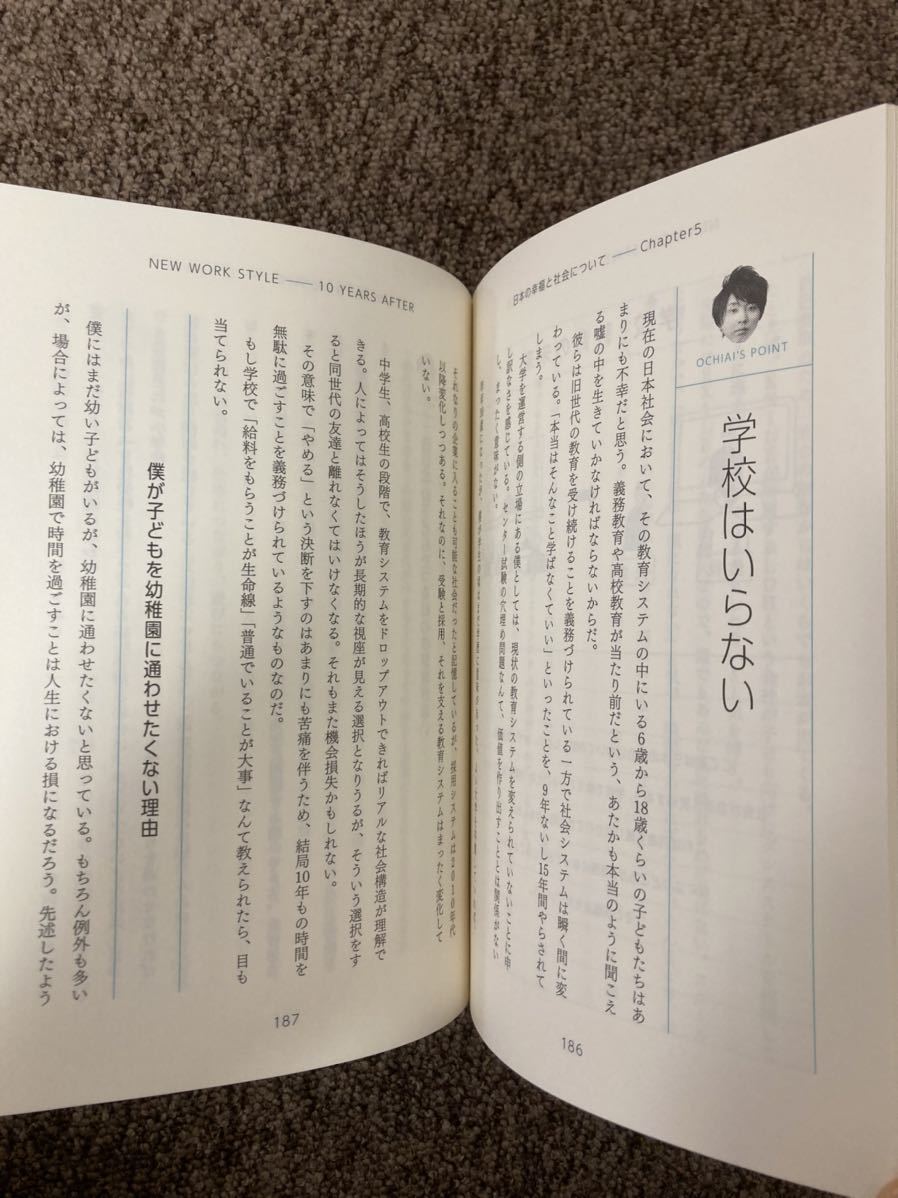 日本の幸福と社会について —— Chapter5
OCHIAI'S POINT
学校はいらない
現在の日本社会において、その教育システムの中にいる6歳から18歳くらいの子どもたちはあ
まりにも不幸だと思う。義務教育や高校教育が当たり前だという、あたかも本当のように聞こえ
る嘘の中を生きていかなければならないからだ。
彼らは旧世代の教育を受け続けることを義務づけられている一方で社会システムは瞬く間に変
わっている。「本当はそんなこと学ばなくていい」といったことを、9年ないし15年間やらされて
しまう。
大学を運営する側の立場にある僕としては、現状の教育システムを変えられていないことに申
し訳なさを感じている。センター試験の穴埋め問題なんて、価値を作り出すこととは関係がない
し、まったく意味がない。
186
NEW WORK STYLE —— 10 YEARS AFTER
それなりの企業に入ることも可能な社会だったと記憶しているが、採用システムは2010年代
以降変化しつつある。それなのに、受験と採用、それを支える教育システムはまったく変化して
いない。
中学生、高校生の段階で、教育システムをドロップアウトできればリアルな社会構造が理解で
きる。人によってはそうしたほうが長期的な視座が見える選択となりうるが、そういう選択をす
ると同世代の友達と離れなくてはいけなくなる。それもまた機会損失かもしれない。
その意味で「やめる」という決断を下すのはあまりにも苦痛を伴うため、結局10年もの時間を
無駄に過ごすことを義務づけられているようなものなのだ。
もし学校で「給料をもらうことが生命線」「普通でいることが大事」なんて教えられたら、目も
当てられない。
僕が子どもを幼稚園に通わせたくない理由
僕にはまだ幼い子どもがいるが、幼稚園に通わせたくないと思っている。もちろん例外も多い
が、場合によっては、幼稚園で時間を過ごすことは人生における損になるだろう。先述したよう
187